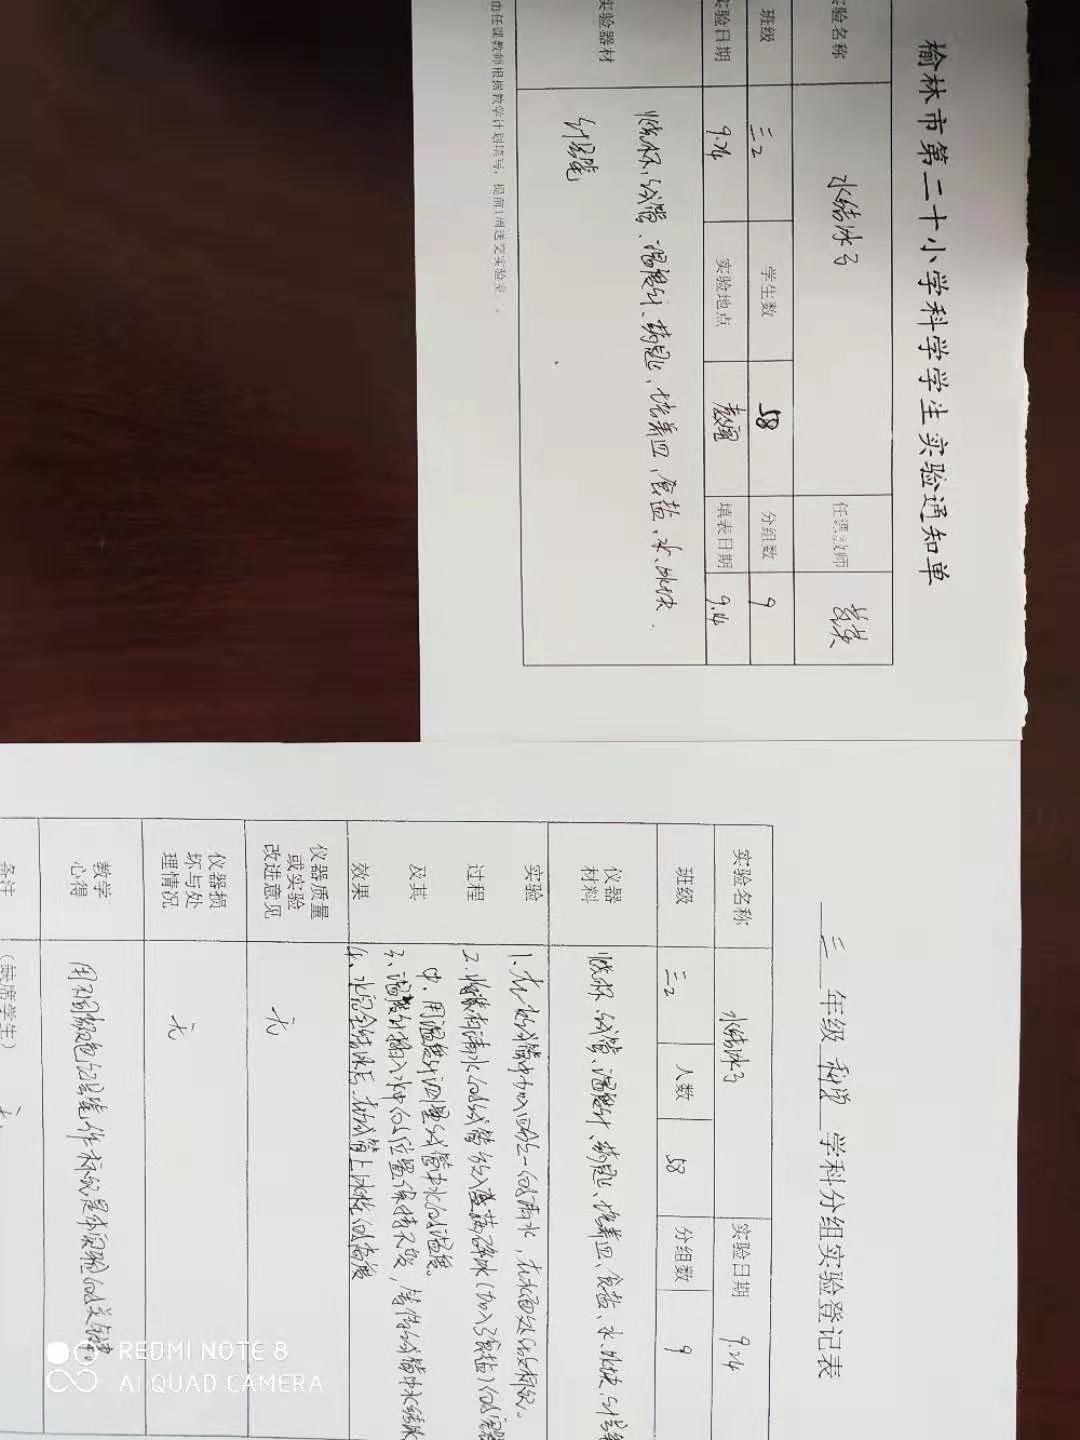 榆林市第二十小学科学学生实验通知单
实验名称 水结冰了 任课教师
班级 三2 学生数 58 分组数 9
实验日期 9.24 实验地点 教室 填表日期 9.14
实验器材 烧杯、试管、温度计、药匙、培养皿、食盐、水、冰块、
记号笔
由任课教师根据教学计划填写，提前1周送交实验室。
三 年级 科学 学科分组实验登记表
实验名称 水结冰了 实验日期 9.24
班级 三2 人数 58 分组数 9
仪器材料 烧杯、试管、温度计、药匙、培养皿、食盐、水、冰块、记号笔
实验过程及其效果
1、在试管中加入四分之一的清水，在水面处做标记。
2、将装有清水的试管放入装满碎冰（加入了食盐）的容器
中，用温度计测量试管中水的温度。
3、温度计插入水中的位置保持不变，等待试管中水结冰
4、水完全结冰后，在试管上标注的高度
仪器质量或实验改进意见 无
仪器损坏与处理情况 无
教学心得 用不同颜色记号笔作标记是本实验的关键。
备注 （缺席学生） 无
REDMI NOTE 8
AI QUAD CAMERA